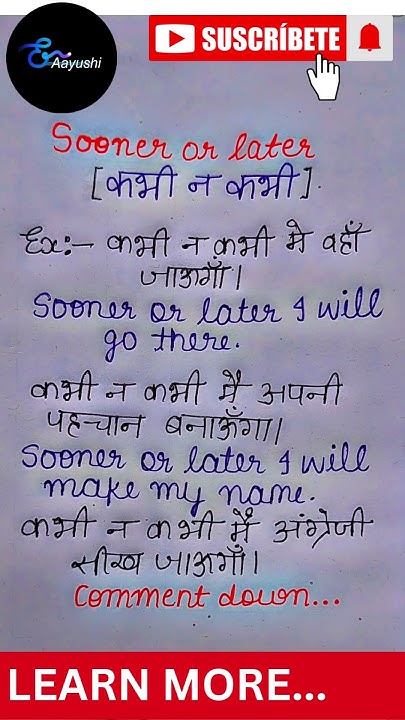 Aayushi
SUSCRÍBETE
Sooner or later
[कभी न कभी].
Ex:- कभी न कभी मे वहाँ
जाऊगाँ।
Sooner or later I will
go there.
कभी न कभी मैं अपनी
पहचान बनाऊँगा।
Sooner or later I will
make my name.
कभी न कभी मैं अंग्रेजी
सीख जाऊगाँ।
Comment down...
LEARN MORE...